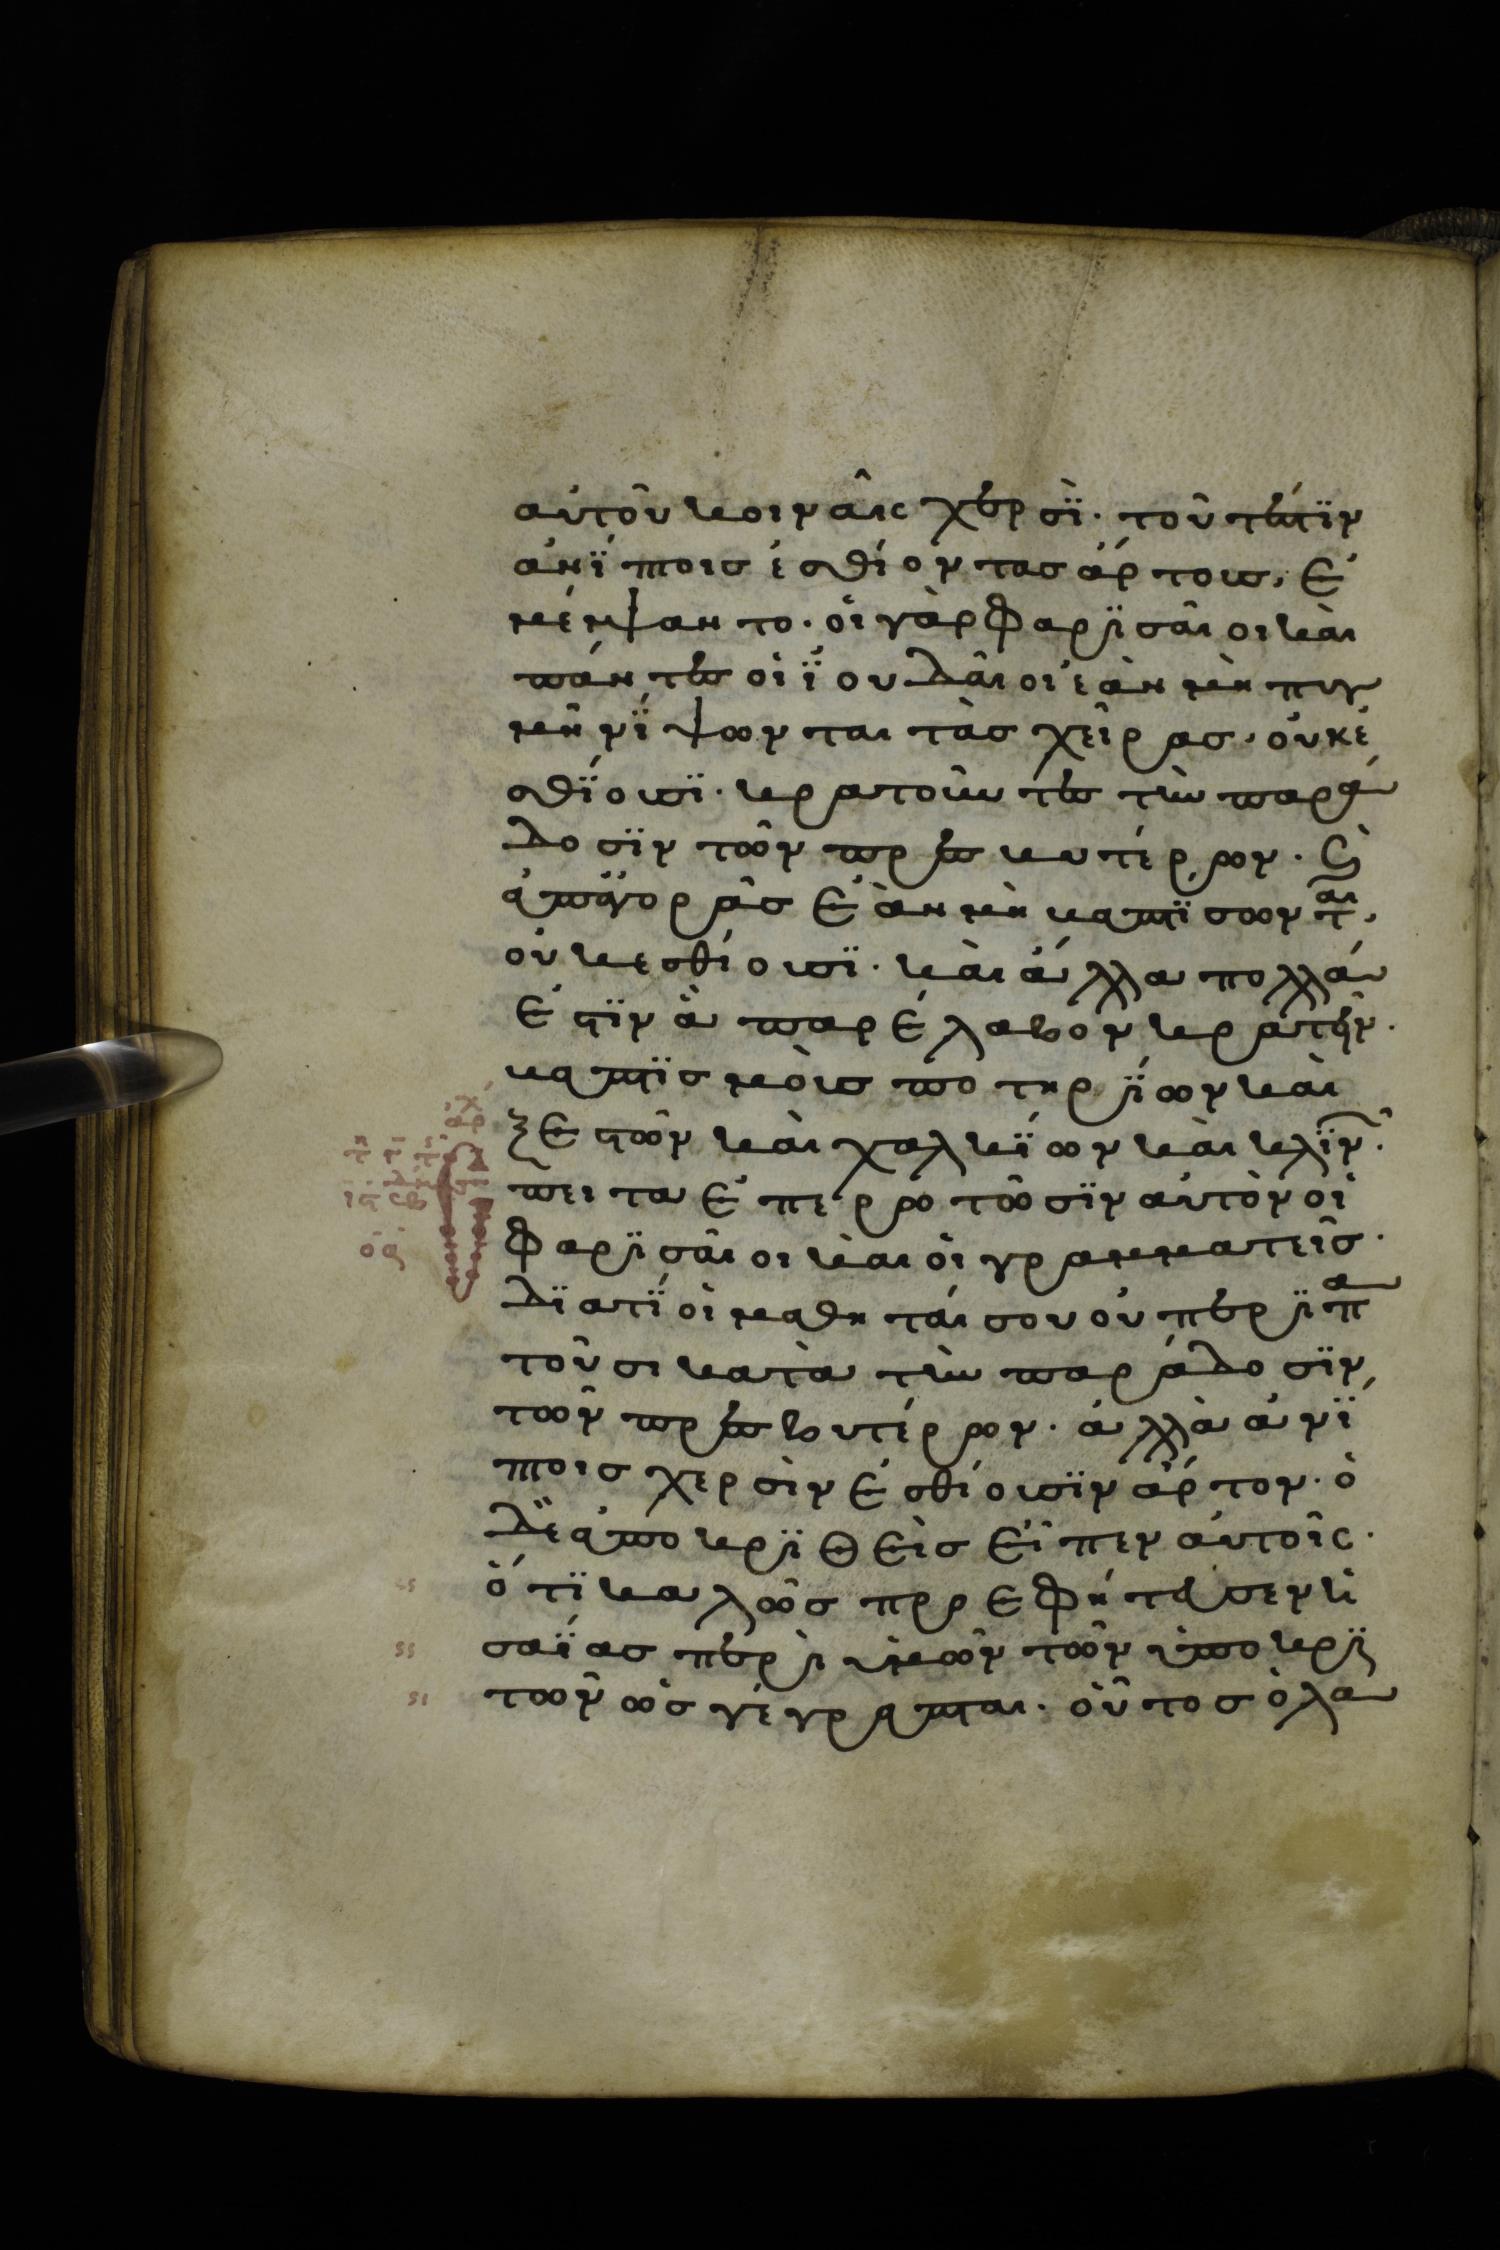 αὐτοῦ κοιναῖς χερσὶ· τοῦτ' ἔστιν
ἀνίπτοις ἐσθίοντας ἄρτους, ἐ
μέμψαντο· οἱ γὰρ Φαρισαῖοι καὶ
πάντες οἱ ἰουδαῖοι ἐὰν μὴ πυγ
μῇ νίψωνται τὰς χεῖρας, οὐκ ἐ
σθίουσι· κρατοῦντες τὴν παρά
δοσιν τῶν πρεσβυτέρων· καὶ
ἀπὸ ἀγορᾶς ἐὰν μὴ βαπτίσωνται,
οὐκ ἐσθίουσι· καὶ ἄλλα πολλά
ἐστιν ἃ παρέλαβον κρατεῖν·
βαπτισμοὺς ποτηρίων καὶ
ξεστῶν καὶ χαλκίων καὶ κλινῶν·
ἔπειτα ἐπερωτῶσιν αὐτὸν οἱ
Φαρισαῖοι καὶ οἱ γραμματεῖς·
διατί οἱ μαθηταί σου οὐ περιπα
τοῦσι κατὰ τὴν παράδοσιν
τῶν πρεσβυτέρων· ἀλλὰ ἀνί
πτοις χερσὶν ἐσθίουσιν ἄρτον· ὁ
δὲ ἀποκριθεὶς εἶπεν αὐτοῖς·
ὅτι καλῶς προεφήτευσεν ἡ
σαΐας περὶ ὑμῶν τῶν ὑποκρι
τῶν ὡς γέγραπται· οὗτος ὁ λα